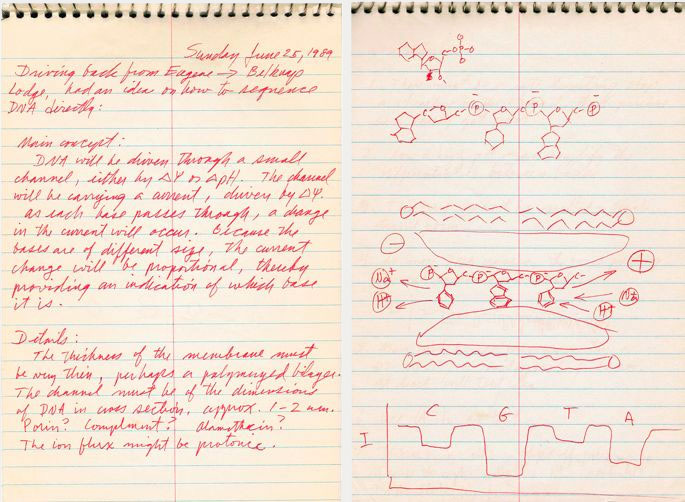 Sunday June 25, 1989
Driving back from Eugene → Belknap
Lodge, had an idea on how to sequence
DNA directly:
Main concept:
DNA will be driven through a small
channel, either by ΔΨ or ΔpH. The channel
will be carrying a current, driven by ΔΨ.
As each base passes through, a change
in the current will occur. Because the
bases are of different size, the current
change will be proportional, thereby
providing an indication of which base
it is.
Details:
The thickness of the membrane must
be very thin, perhaps a polymerized bilayer.
The channel must be of the dimensions
of DNA in cross section, approx. 1-2 nm.
Porin? Compliment? Alamethacin?
The ion flux might be protonic.
O-P-O
P P P
−
+
P P P
Na+
H+
Na+
H+
C G T A
I